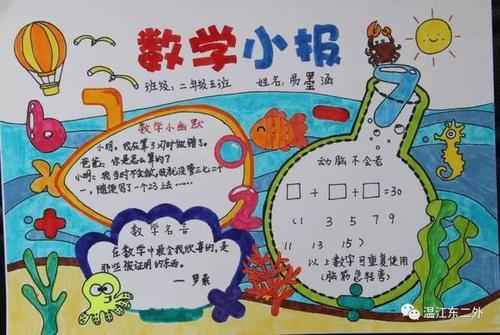 数学小报
班级：二年级五班 姓名：易墨涵
数学小幽默
小明：我在第3小时做错了。
爸爸：你是怎么算的？
小明：我当时不会做，就先没管三七二十
一，随便写了个23上去……
数学名言
在数学中最令我欣喜的，是
那些能被证明的东西。
—罗素
动脑不会老
□+□+□=30
(1 3 5 7 9
11 13 15)
以上数字可重复使用
(脑筋急转弯)
温江东二外